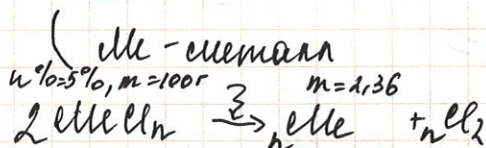 ( Me - металл
w%=5%, m=100г m=2,36
2MeCln → nMe + nCl2